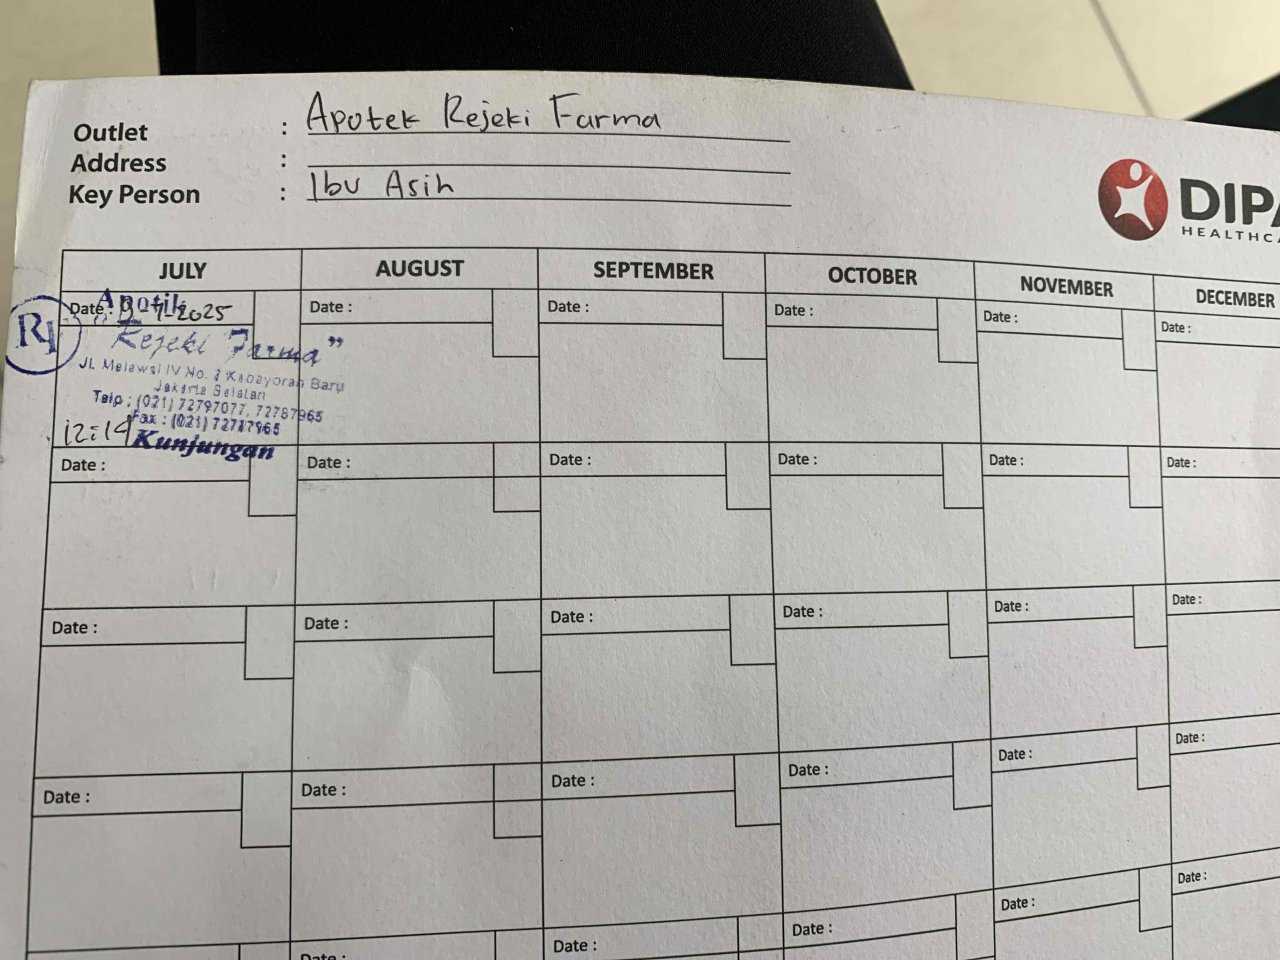 Outlet : Apotek Rejeki Farma
Address :
Key Person : Ibu Asih
DIPA
HEALTHCA
JULY AUGUST SEPTEMBER OCTOBER NOVEMBER DECEMBER
Date : 7-2025 Date : Date : Date : Date : Date :
Apotik
R
"Rejeki Farma"
JL Melawai IV No. Kebayoran Baru
Jakarta Selatan
Telp : (021) 72797077, 72787965
Fax : (021) 72787965
12:14 Kunjungan
Date : Date : Date : Date : Date : Date :
Date : Date : Date : Date : Date : Date :
Date : Date : Date : Date : Date : Date :
Date : Date : Date : Date : Date :